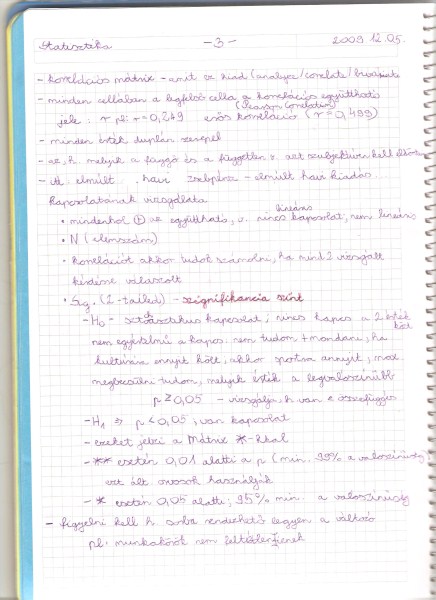 Statisztika -3- 2009.12.05.
- korrelációs mátrix - amit ez kiad (analyze/correlate/bivariate
- minden cellában a legfelső cella a korrelációs együttható
(Pearson Correlation)
jele: r pl: r=0,249 erős korreláció (r=0,499)
- minden érték duplán szerepel
- az, h. melyik a függő és a független v. azt szubjektíven kell
- elmúlt havi zsebpénz - elmúlt havi kiadás
kapcsolatának vizsgálata
• mindenhol ⊕ az együttható, v. nincs lineáris kapcsolat, nem lineáris
• N (elemszám)
• korrelációt akkor tudok számolni, ha mind 2 vizsgált
kérdésre válaszolt
• Sig. (2-tailed) - szignifikancia szint
- H0 - sztochasztikus kapcsolat; nincs kapcs. a 2 érték közt
nem egyértelmű a kapcs. nem tudom + mondani, ha
kultúrára ennyit költ, akkor sportra annyit,
megbecsülni tudom, melyik érték a legvalószínűbb
p ≥ 0,05 - vizsgálja, h. van e összefüggés
- H1 ⇒ p < 0,05, van kapcsolat
- ezeket jelzi a Mátrix *-kkal
- ** esetén 0,01 alatti a p (min. 99% a valószínűség
ezt ált. orvosok használják
- * esetén 0,05 alatti; 95% min. a valószínűség
- figyelni kell h. sorba rendezhető legyen a változó
pl. munkakörök nem feltétlenül